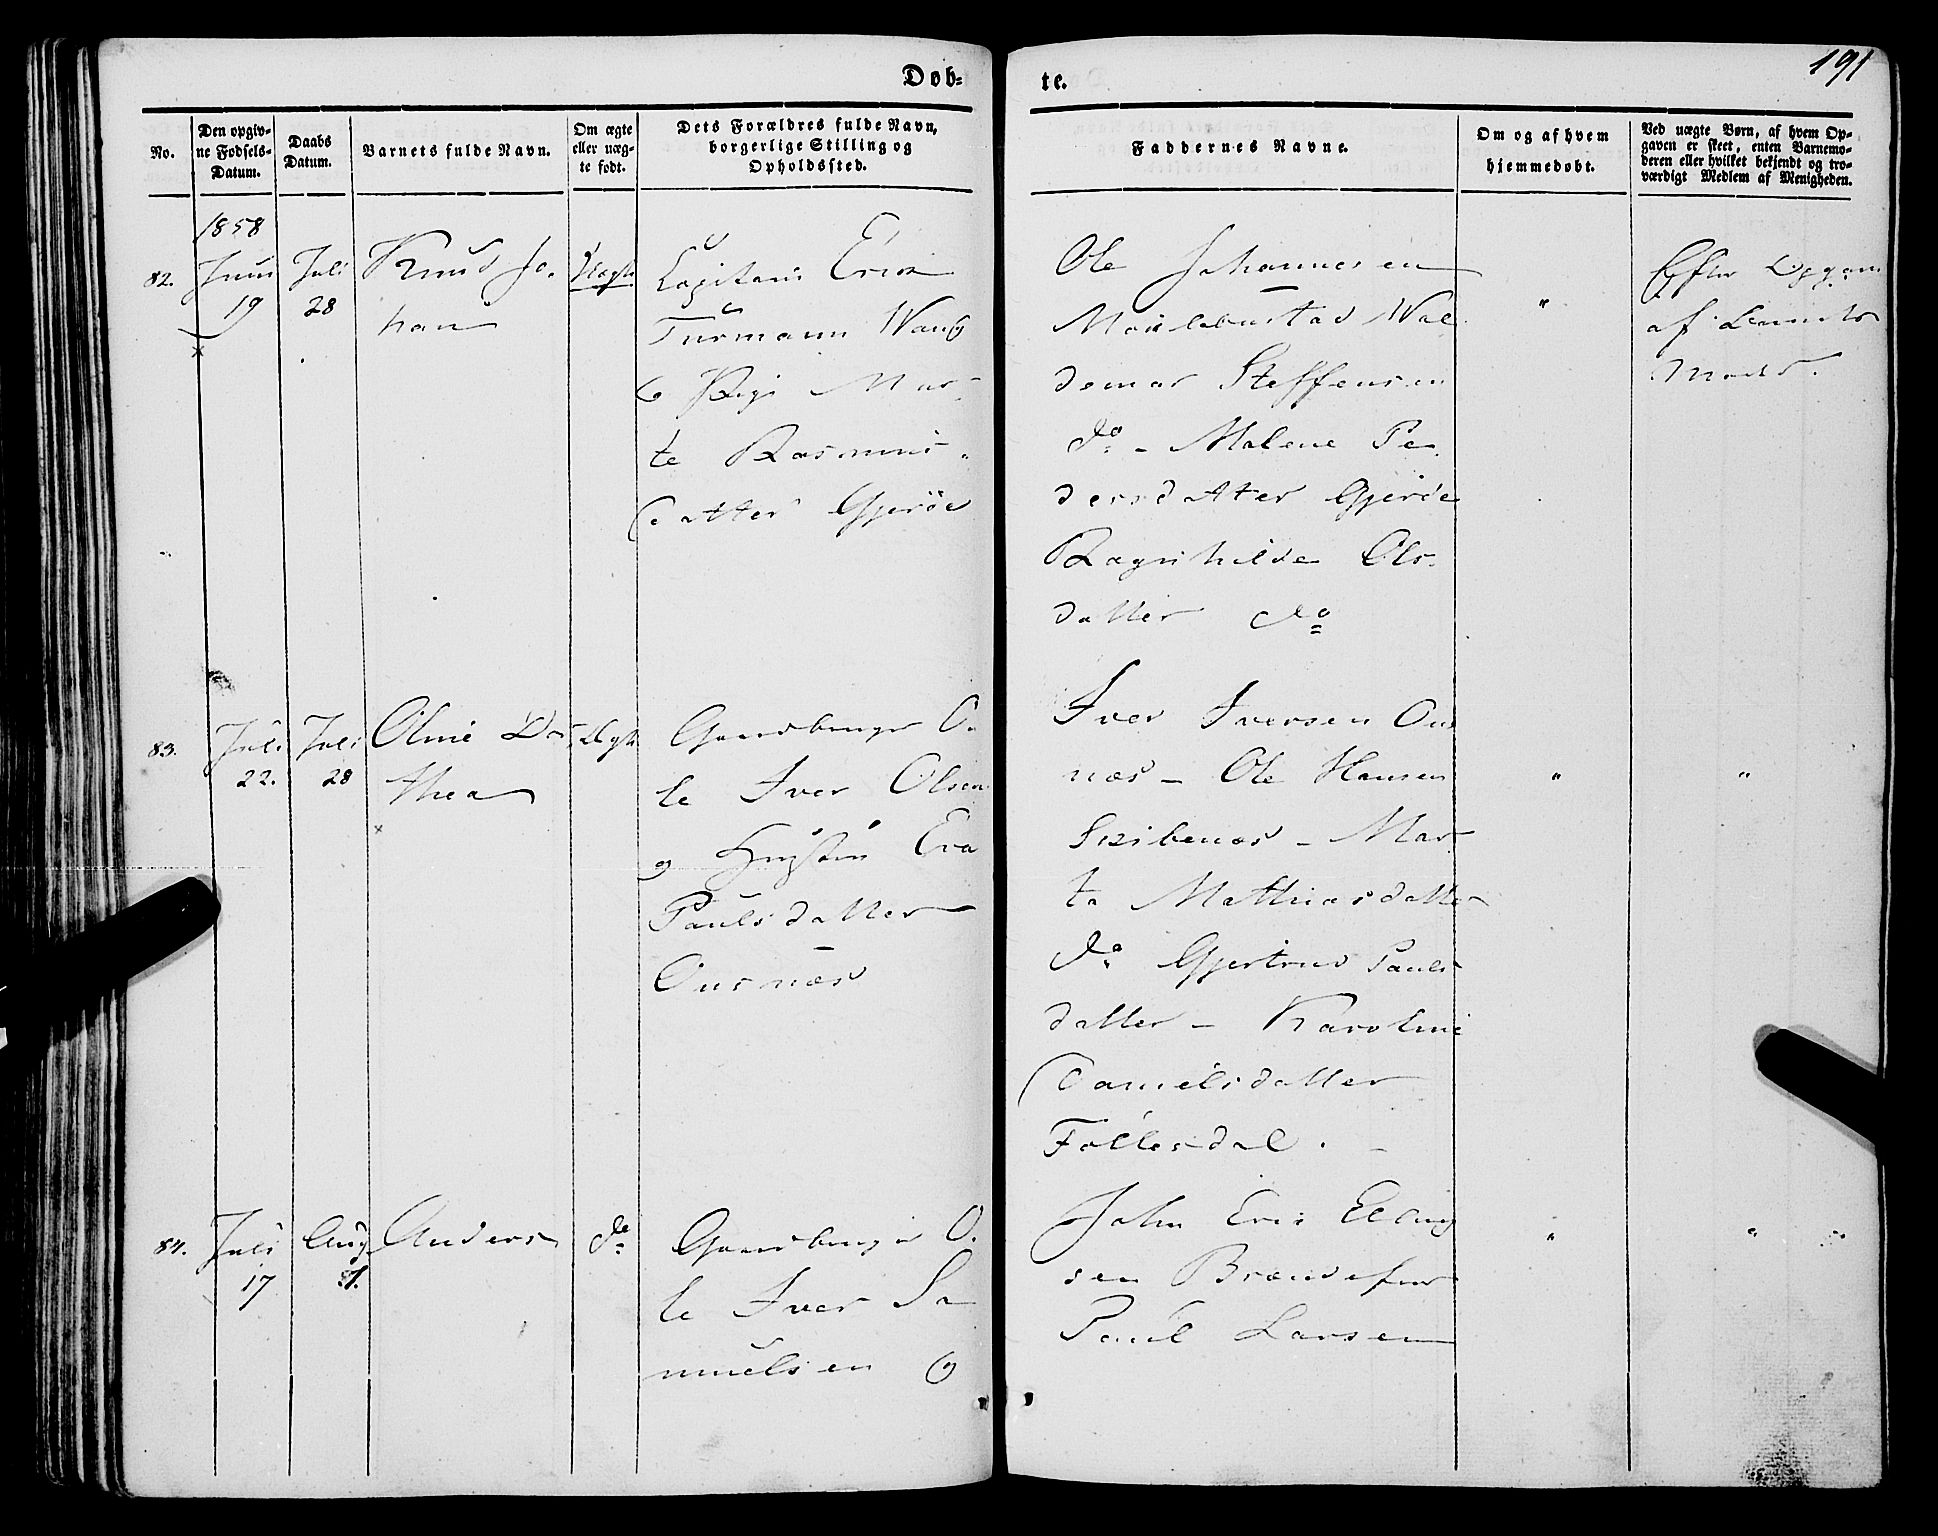 Döb-
te.
191
No.
Den opgiv-
ne Födsels-
Datum.
Daabs
Datum.
Barnets fulde Navn.
Om ægte
eller uæg-
te födt.
Dets Forældres fulde Navn,
borgerlige Stilling og
Opholdssted.
Faddernes Navne.
Om og af hvem
hjemmedöbt.
Ved uægte Börn, af hvem Op-
gaven er skeet, enten Barnemo-
deren eller hvilket bekjendt og tro-
værdigt Medlem af Menigheden.
1858
82.
Juni
19
Juli
28
Knud Jo-
han
Uægte
Capitain Erik
Turmann Wang
og Pige Mar-
te Rasmus-
datter Gjerde
Ole Johannesen
Moulebustad Wal
demar Steffensen
do - Malene Pe
dersdatter Gjerde
Ragnhilde Ols-
datter do
"
Efter Opgave
af Barnets
Moder.
83.
Juli
22.
Juli
28
Oline Do-
thea
Ægte
Gaardbruger O-
le Iver Olsen
og Hustru Eva
Paulsdatter
Ousnæs
Iver Iversen Ous
næs - Ole Hansen
Skibenæs - Mar
ta Mathiasdatter
do Gjertrud Pauls
datter - Karoline
Danielsdatter
Follesdal.
"
"
84.
Juli
17
Aug
1.
Anders
do
Gaardbruger O-
le Iver Sa
muelsen og
John Eric Elling
sen
Paul Larsen
"
"